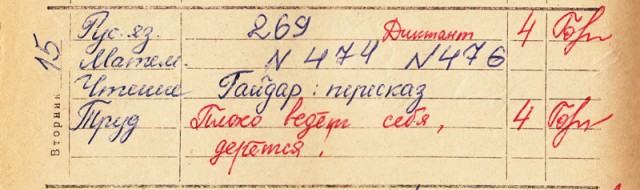 Вторник 15
Рус. яз. 269 Диктант 4
Матем. N 474 N 476
Чтение Гайдар: пересказ
Труд Плохо ведёт себя, 4
дерётся.